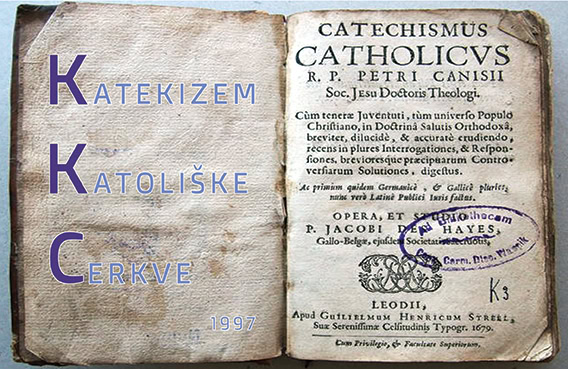 KATEKIZEM
KATOLIŠKE
CERKVE
1997
CATECHISMUS
CATHOLICVS
R. P. PETRI CANISII
Soc. Jesu Doctoris Theologi.
Cùm teneræ Juventuti, tùm universo Populo
Christiano, in Doctrinâ Salutis Orthodoxâ,
breviter, dilucidè, & accuratè erudiendo,
recens in plures Interrogationes, & Respon-
siones, brevioresque præcipuarum Contro-
versiarum Solutiones, digestus.
Ac primùm quidem Germanicè, & Gallicè pluries,
nunc verò Latinè Publici Iuris factus.
OPERA, ET STUDIO
P. JACOBI DES HAYES,
Gallo-Belgæ, ejusdem Societatis
Ad Bibliothecam
Carm. Disc.
K3
LEODII,
Apud GUILIELMUM HENRICUM STREEL,
Suæ Serenissimæ Celsitudinis Typogr. 1679.
Cum Privilegio, & Facultate Superiorum.